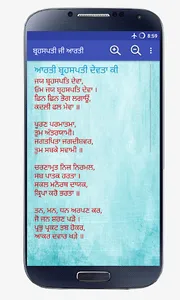 8:59
ਬ੍ਰਹਸਪਤੀ ਜੀ ਆਰਤੀ
ਆਰਤੀ ਬ੍ਰਹਸਪਤੀ ਦੇਵਤਾ ਕੀ
ਜਯ ਬ੍ਰਹਸਪਤਿ ਦੇਵਾ,
ਓਮ ਜਯ ਬ੍ਰਹਸਪਤਿ ਦੇਵਾ ।
ਛਿਨ ਛਿਨ ਭੋਗ ਲਗਾਊਂ,
ਕਦਲੀ ਫਲ ਮੇਵਾ ॥
ਪੂਰਣ ਪਰਮਾਤਮਾ,
ਤੁਮ ਅੰਤਰਯਾਮੀ ।
ਜਗਤਪਿਤਾ ਜਗਦੀਸ਼ਵਰ,
ਤੁਮ ਸਬਕੇ ਸਵਾਮੀ ॥
ਚਰਣਾਮ੍ਰਤ ਨਿਜ ਨਿਰਮਲ,
ਸਬ ਪਾਤਕ ਹਰਤਾ ।
ਸਕਲ ਮਨੋਰਥ ਦਾਯਕ,
ਕ੍ਰਿਪਾ ਕਰੋ ਭਰਤਾ ॥
ਤਨ, ਮਨ, ਧਨ ਅਰਪਣ ਕਰ,
ਜੋ ਜਨ ਸ਼ਰਣ ਪੜੇ ।
ਪ੍ਰਭੂ ਪ੍ਰਕਟ ਤਬ ਹੋਕਰ,
ਆਕਰ ਦਵਾਰ ਖੜੇ ॥